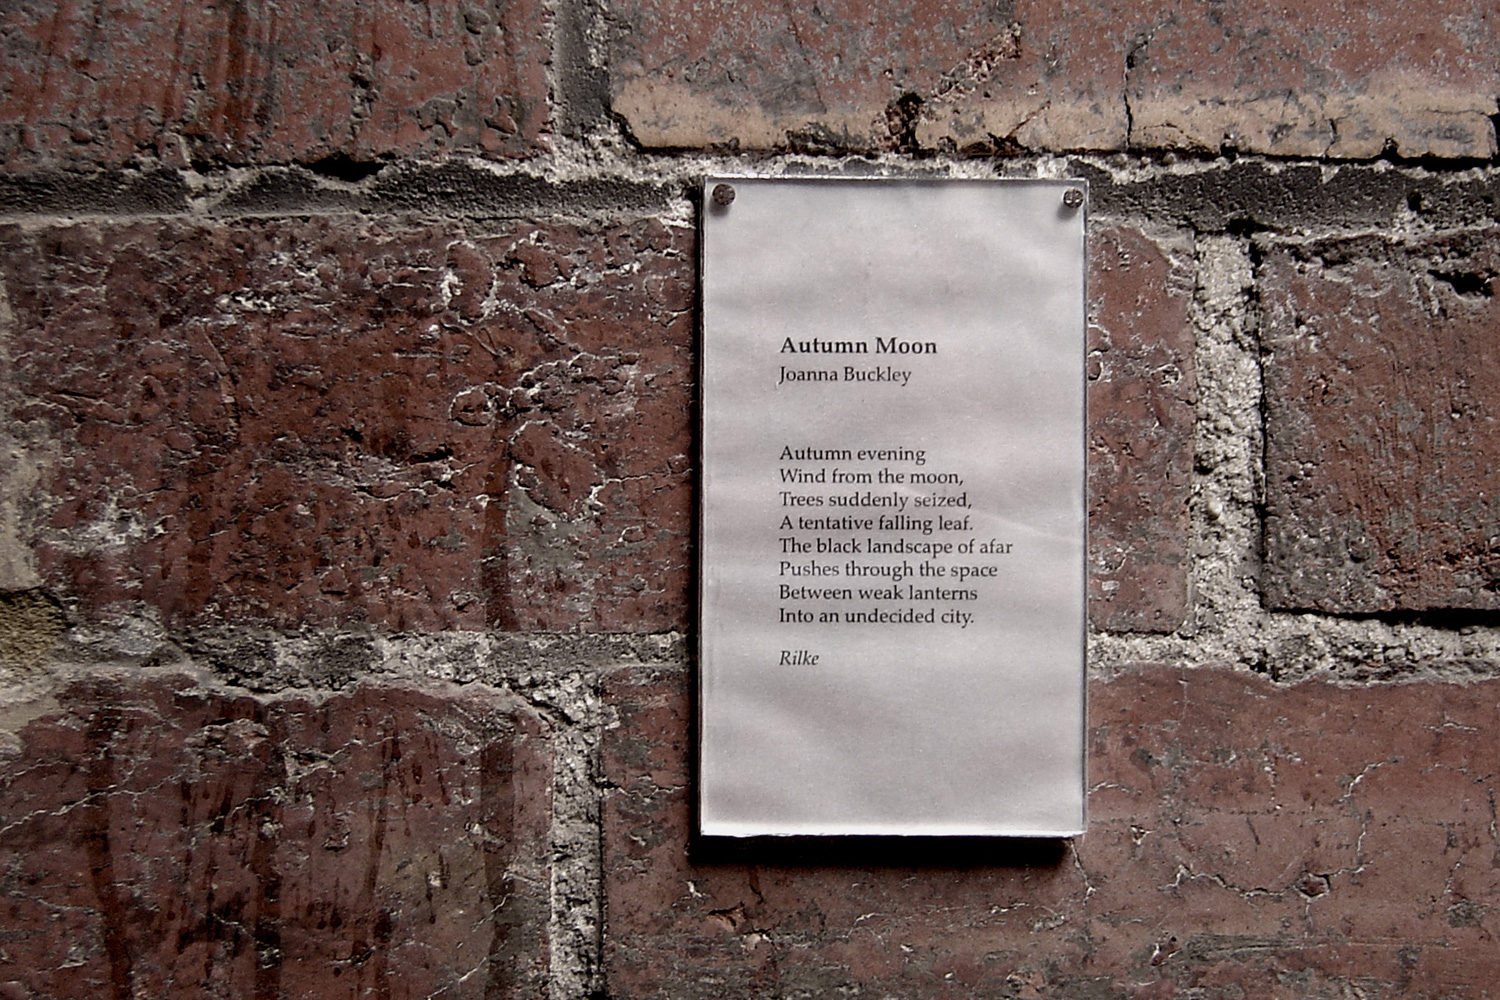 Autumn Moon
Joanna Buckley
Autumn evening
Wind from the moon,
Trees suddenly seized,
A tentative falling leaf.
The black landscape of afar
Pushes through the space
Between weak lanterns
Into an undecided city.
Rilke